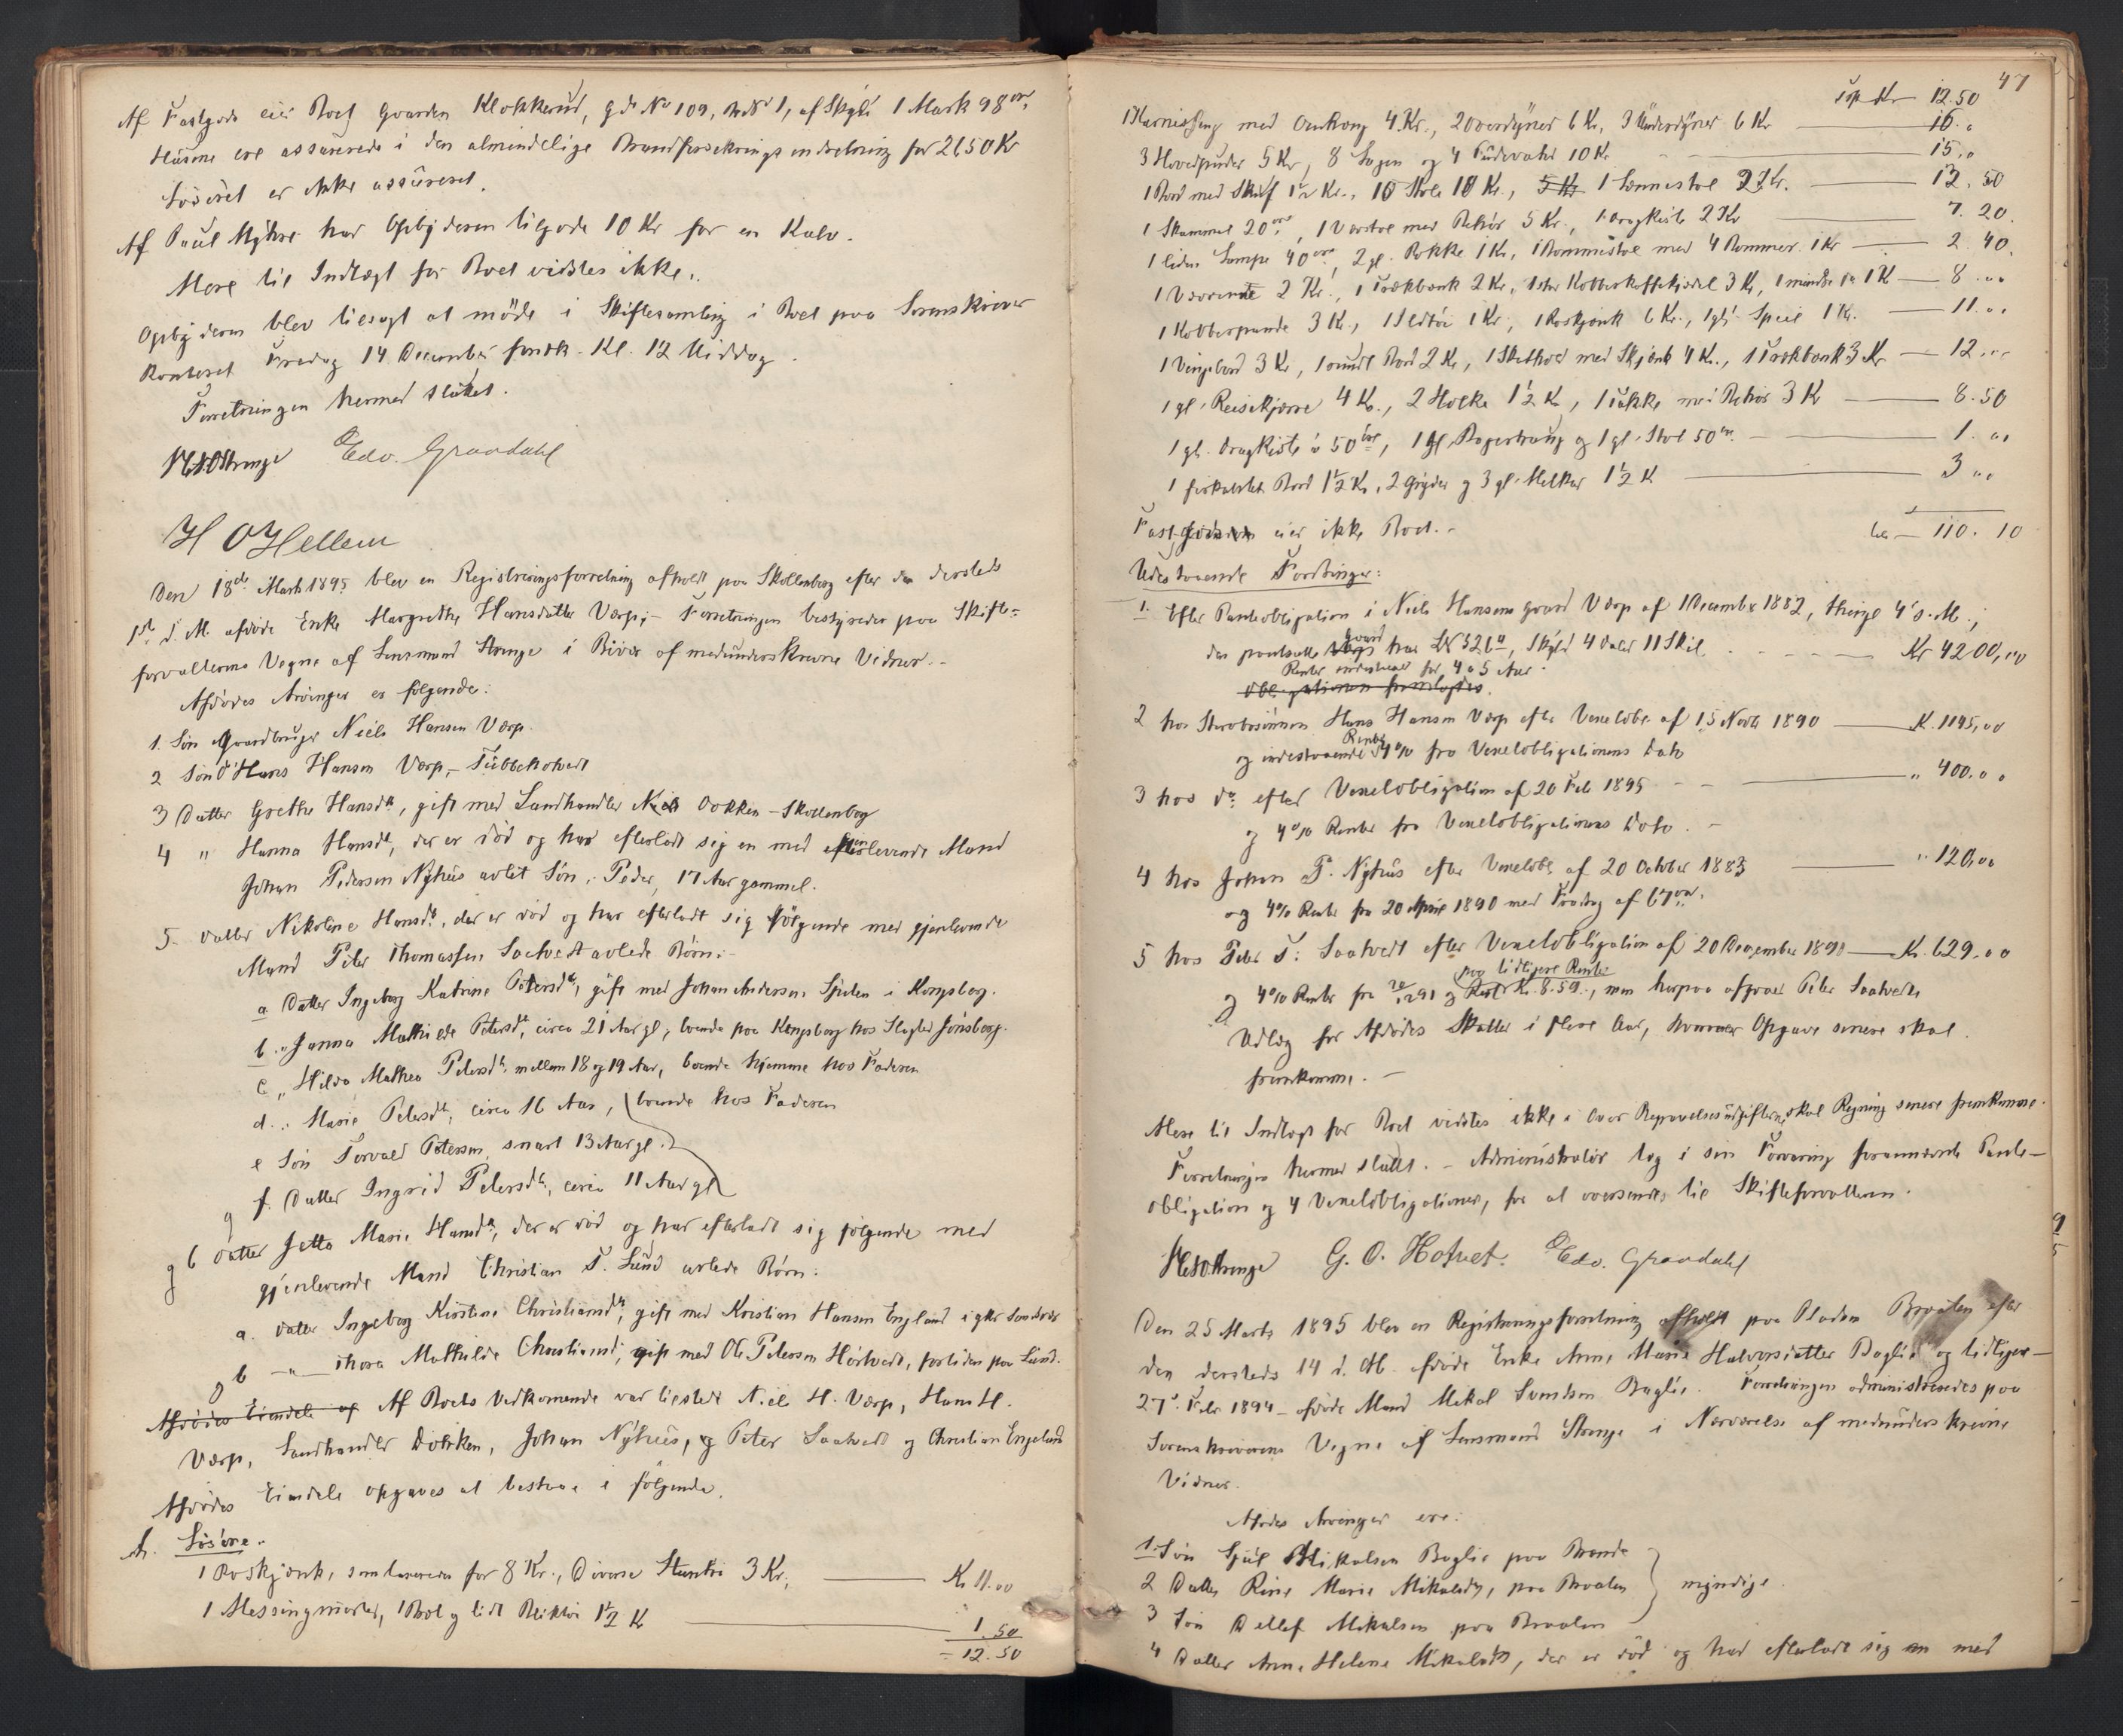 Af Fastgods eier Boet Gaarden Klokkerud, gds No 109, Brs No 1, af Skyld 1 Mark 98 øre,
Husene ere assurerede i den almindelige Brandforsikrings indretning for 2650 Kr
Løsøret er ikke assureret.
Af Paul Myhre har Opbyderen tilgode 10 Kr for en Kalv.
Mere til Indtægt for Boet vidstes ikke.
Opbyderen blev tilsagt at møde i Skiftesamling i Boet paa Sorenskriver
kontoret Fredag 14 December førstk. Kl. 12 Middag.
Forretningen hermed sluttet.
Edv. Graadahl
H O Hellem
Den 18de Marts 1895 blev en Registreringsforretning afholdt paa Skollenborg efter den dersteds
1ste d. M. afdøde Enke Margrethe Hansdatter Værp; – Forretningen bestyredes paa Skifte-
forvalterens Vegne af Lensmand Strenge i Bivær af medunderskrevne Vidner. –
Afdødes Arvinger er følgende:
1. Søn Gaardbruger Niels Hansen Værp.
2 Søn Hans Hansen Værp, – Tubbehotvedt
3 Datter Grethe Hansdtr, gift med Landhandler Niels Dokken – Skollenborg
4 " Hanna Hansdtr, der er død og har efterladt sig en med efterlevende Mand
Johan Pedersen Nyhus avlet Søn, Peder, 17 Aar gammel.
5. Datter Nikoline Hansdtr, der er død og har efterladt sig følgende med gjenlevende
Mand Peter Thomassen Saatvedt avlede Børn: –
a Datter Ingeborg Katrine Petersdtr, gift med Johan Andersen, i Kongsberg.
b " Janna Mathilde Petersdtr, circa 21 Aar gl, boende paa Kongsberg hos Slagter Jønsberg.
c " Hilda Mathea Petersdtr, mellem 18 og 19 Aar, boende hjemme hos Faderen
d. " Marie Petersdtr, circa 16 Aar, boende hos Faderen
e Søn Torvald Petersen, snart 13 Aar gl.
f. Datter Ingrid Petersdtr, circa 11 Aar gl
6 Datter Jetta Marie Hansdtr, der er død og har efterladt sig følgende med
gjenlevende Mand Christian T. Lund avlede Børn:
a. Datter Ingeborg Kirstine Christiansdtr, gift med Kristian Hansen England i Sandsvær
b —"— Thora Mathilde Christiansdtr, gift med Ole Petersen Hostvedt, fortiden paa Lund.
Afdødes Eiendele af Af Boets Vedkomende var tilstede Niels H. Værp, Hans H.
Værp, Landhandler Dokken, Johan Nyhus, og Peter Saatvedt og Christian Engeland
Afdødes Eiendele opgaves at bestaa i følgende.
A. Løsøre.
1 Roskjænk, som taxeredes for 8 Kr., Diverse Stentøi 3 Kr., — Kr 11.00
1 Messingmorter, 1 Bol og lidt Bliktøi 1½ Kr — 1.50
= 12.50
47
Trsp Kr 12.50
1 Karnisseng med Omhæng 4 Kr., 2 Overdyner 6 Kr, 3 Underdyner 6 Kr — 16. "
3 Hovedpuder 5 Kr, 8 Lagen og 4 Pudevaar 10 Kr — 15. "
1 Bord med Skuf 1½ Kr., 10 Stole 10 Kr., 5 Kr 1 Lænnestol 2 Kr. — 13.50
1 Skammel 20 øre, 1 Vævstol med Behør 5 Kr., 1 Dragkiste 2 Kr — 7.20.
1 liden Lampe 40 øre, 2 gl. Rokke 1 Kr, 1 Rommestol med 4 Rommer 1 Kr — 2.40.
1 2 Kr., 1 Trækbænk 2 Kr, 1 stor Kobberkaffekjedel 3 Kr, 1 mindre do 1 K — 8. " "
1 Kobberpande 3 Kr., 1 Ildtøi 1 Kr, 1 Roskjænk 6 Kr., 1 gl. Speil 1 Kr. — 11. " "
1 Vingebord 3 Kr, 1 rundt Bord 2 Kr, 1 med Skjænk 4 Kr., 1 Trækbænk 3 Kr — 12. " "
1 gl. Reisekjærre 4 Kr., 2 Holke 1½ Kr, 1 med Behør 3 Kr — 8.50
1 gl. Dragkiste 50 øre, 1 gl. og 1 gl. Stol 50 øre. — 1. " "
1 firkantet Bord 1½ Kr, 2 Gryder og 3 gl. 1½ K — 3 " "
Fastgods eier ikke Boet. – — 110.10
Udestaaende Fordringer:
1. Efter Panteobligation i Niels Hansens gaard Værp af 1 December 1882, thingl. 4 s. M.;
den pantsatte Gaard har LN 326 a, Skyld 4 Daler 11 Skil — Kr 4200,00
Renter indestaaer for 4 a 5 Aar.
Obligationen fremlagdes.
2 hos Hans Hansen Værp efter Vexelobl. af 15 Novb 1890 — K. 1145,00
og indestaaende Renter 4% fra Vexelobligationens Dato
3 hos do efter Vexelobligation af 20 Feb 1895 — " 400.00
og 4% Renter fra Vexelobligationens Dato. –
4 hos Johan P. Nyhus efter Vexelobl. af 20 October 1883 — " 120,00
og 4% Rente fra 20 April 1890 med Fradrag af 67 øre.
5 hos Peter T. Saatvedt efter Vexelobligation af 20 December 1890 — Kr. 629.00
og 4% Renter fra og paa tidligere Renter Rest Kr. 8.59., men herpaa afgaaer Peter Saatvedts
Udlæg for Afdødes Skatter i flere Aar, hvorover Opgave senere skal
fremkomme. –
Mere til Indtægt for Boet vidstes ikke. Over Begravelsesudgifterne skal Regning senere fremkomme.
Forretningen hermed sluttet. – Administrator tog i sin Forvaring forannævnte Pante-
obligation og 4 Vexelobligationer, for at oversendes til Skifteforvalteren.
G. O. Hotvet. Edv. Graadahl
Den 25 Marts 1895 blev en Registreringsforretning afholdt paa Pladsen Braaten efter
den dersteds 14 d. M. afdøde Enke Anne Marie Halvorsdatter Baglie og tidligere –
27 Febr 1894 – afdøde Mand Mikal Baglie. Forretningen administreredes paa
Sorenskriverens Vegne af Lensmand Strenge i Nærværelse af medunderskrevne
Vidner.
Afdødes Arvinger ere:
1. Søn Mikalsen Baglie paa
2 Datter Marie Mikalsdtr, paa Braaten myndige.
3 Søn Detlef Mikalsen paa Braaten
4 Datter Anne Helene Mikalsdtr, der er død og har efterladt sig en med